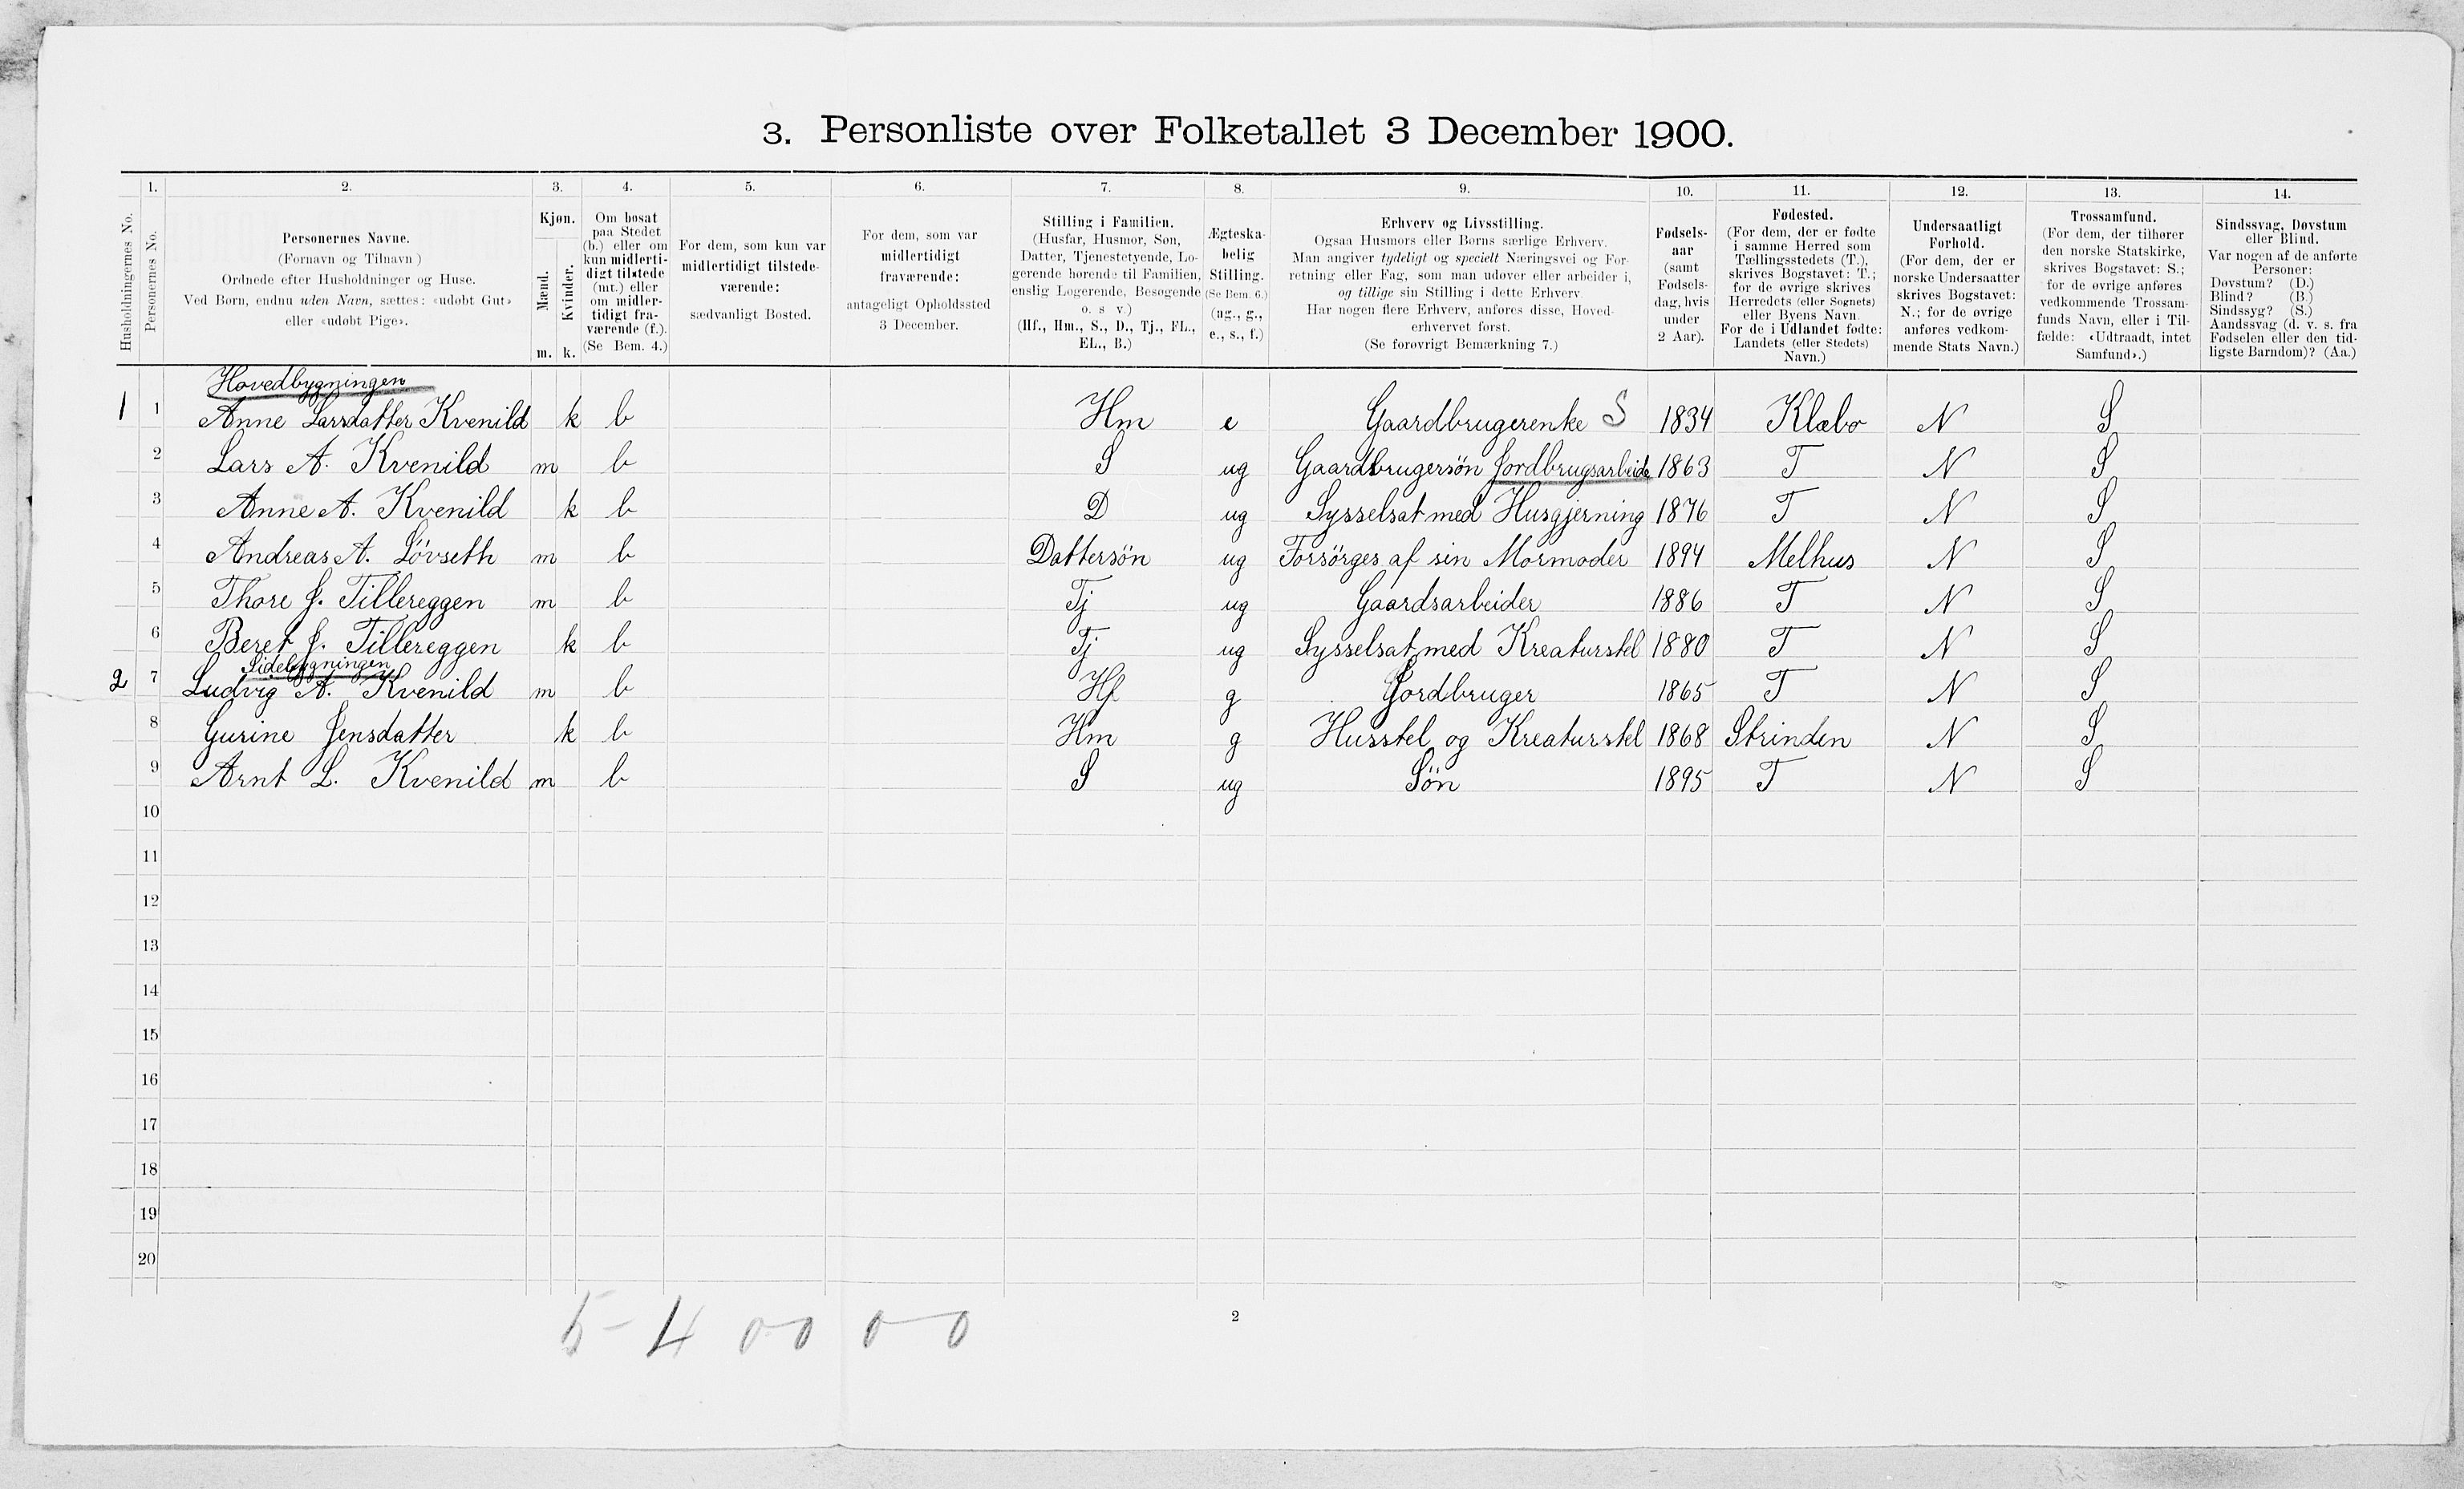 3. Personliste over Folketallet 3 December 1900.
1. 2. 3. 4. 5. 6. 7. 8. 9. 10. 11. 12. 13. 14.
Husholdningernes No.
Personernes No.
Personernes Navne.
(Fornavn og Tilnavn)
Ordnede efter Husholdninger og Huse.
Ved Børn, endnu uden Navn, sættes: «udøbt Gut»
eller «udøbt Pige».
Kjøn.
Mænd.
Kvinder.
m. k.
Om bosat
paa Stedet
(b.) eller om
kun midlerti-
digt tilstede
(mt.) eller
om midler-
tidigt fra-
værende (f.).
(Se Bem. 4.)
For dem, som kun var
midlertidigt tilstede-
værende:
sædvanligt Bosted.
For dem, som var
midlertidigt
fraværende:
antageligt Opholdssted
3 December.
Stilling i Familien.
(Husfar, Husmor, Søn,
Datter, Tjenestetyende, Lo-
gerende hørende til Familien,
enslig Logerende, Besøgende
o. s. v.)
(Hf., Hm., S., D., Tj., FL.,
EL., B.)
Ægteska-
belig
Stilling.
(Se Bem. 6.)
(ug., g.,
e., s., f.)
Erhverv og Livsstilling.
Ogsaa Husmors eller Børns særlige Erhverv.
Man angiver tydeligt og specielt Næringsvei og For-
retning eller Fag, som man udøver eller arbeider i,
og tillige sin Stilling i dette Erhverv
Har nogen flere Erhverv, anføres disse, Hoved-
erhvervet først.
(Se forøvrigt Bemærkning 7.)
Fødsels-
aar
(samt
Fødsels-
dag, hvis
under
2 Aar).
Fødested.
(For dem, der er fødte
i samme Herred som
Tællingsstedets (T.),
skrives Bogstavet: T.;
for de øvrige skrives
Herredets (eller Sognets)
eller Byens Navn.
For de i Udlandet fødte:
Landets (eller Stedets)
Navn.)
Undersaatligt
Forhold.
(For dem, der er
norske Undersaatter
skrives Bogstavet:
N.; for de øvrige
anføres vedkom-
mende Stats Navn.)
Trossamfund.
(For dem, der tilhører
den norske Statskirke,
skrives Bogstavet: S.;
for de øvrige anføres
vedkommende Trossam-
funds Navn, eller i Til-
fælde: «Udtraadt, intet
Samfund».)
Sindssvag, Døvstum
eller Blind.
Var nogen af de anførte
Personer:
Døvstum? (D.)
Blind? (B.)
Sindssyg? (S.)
Aandssvag (d. v. s. fra
Fødselen eller den tid-
ligste Barndom)? (Aa.)
Hovedbygningen
1 1 Anne Larsdatter Kvenild k b Hm e Gaardbrugerenke S 1834 Klæbo N S
2 Lars A. Kvenild m b S ug Gaardbrugersön Jordbrugsarbeide 1863 T N S
3 Anne A. Kvenild k b D ug Sysselsat med Husgjerning 1876 T N S
4 Andreas A. Lövseth m b Dattersön ug Forsörges af sin Mormoder 1894 Melhus N S
5 Thore J. Tillereggen m b Tj ug Gaardsarbeider 1886 T N S
6 Beret J. Tillereggen k b Tj ug Sysselsat med Kreaturstel 1880 T N S
Sidebygningen
2 7 Ludvig A. Kvenild m b Hf g Jordbruger 1865 T N S
8 Gurine Jensdatter k b Hm g Husstel og Kreaturstel 1868 Strinden N S
9 Arnt L. Kvenild m b S ug Sön 1895 T N S
10
11
12
13
14
15
16
17
18
19
20
5-4 00 00
2